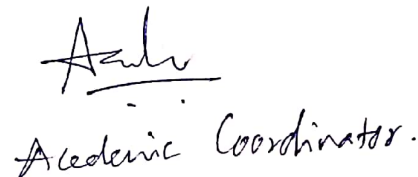 Academic Coordinator.